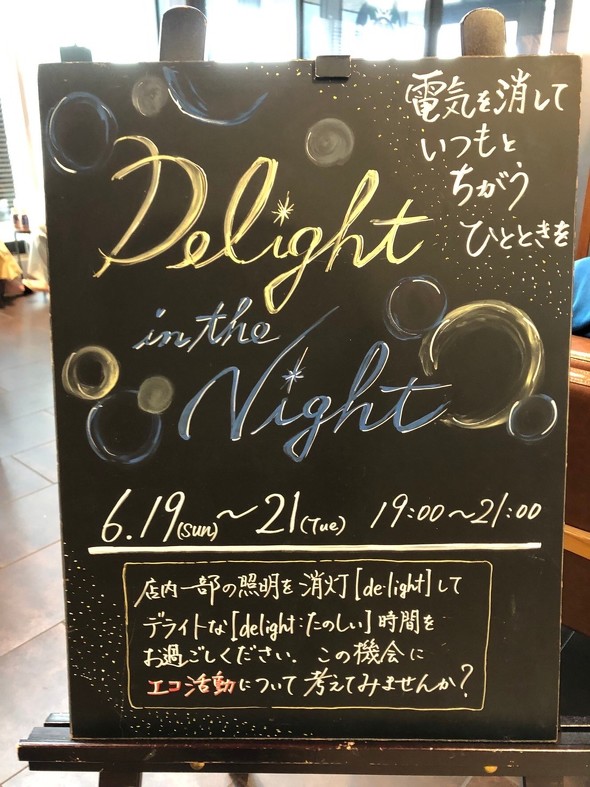 電気を消して
いつもと
ちがう
ひとときを
Delight
in the
Night
6.19(Sun)～21(Tue) 19:00～21:00
店内一部の照明を消灯[de・light]して
デライトな[delight:たのしい]時間を
お過ごしください. この機会に
エコ活動について考えてみませんか?